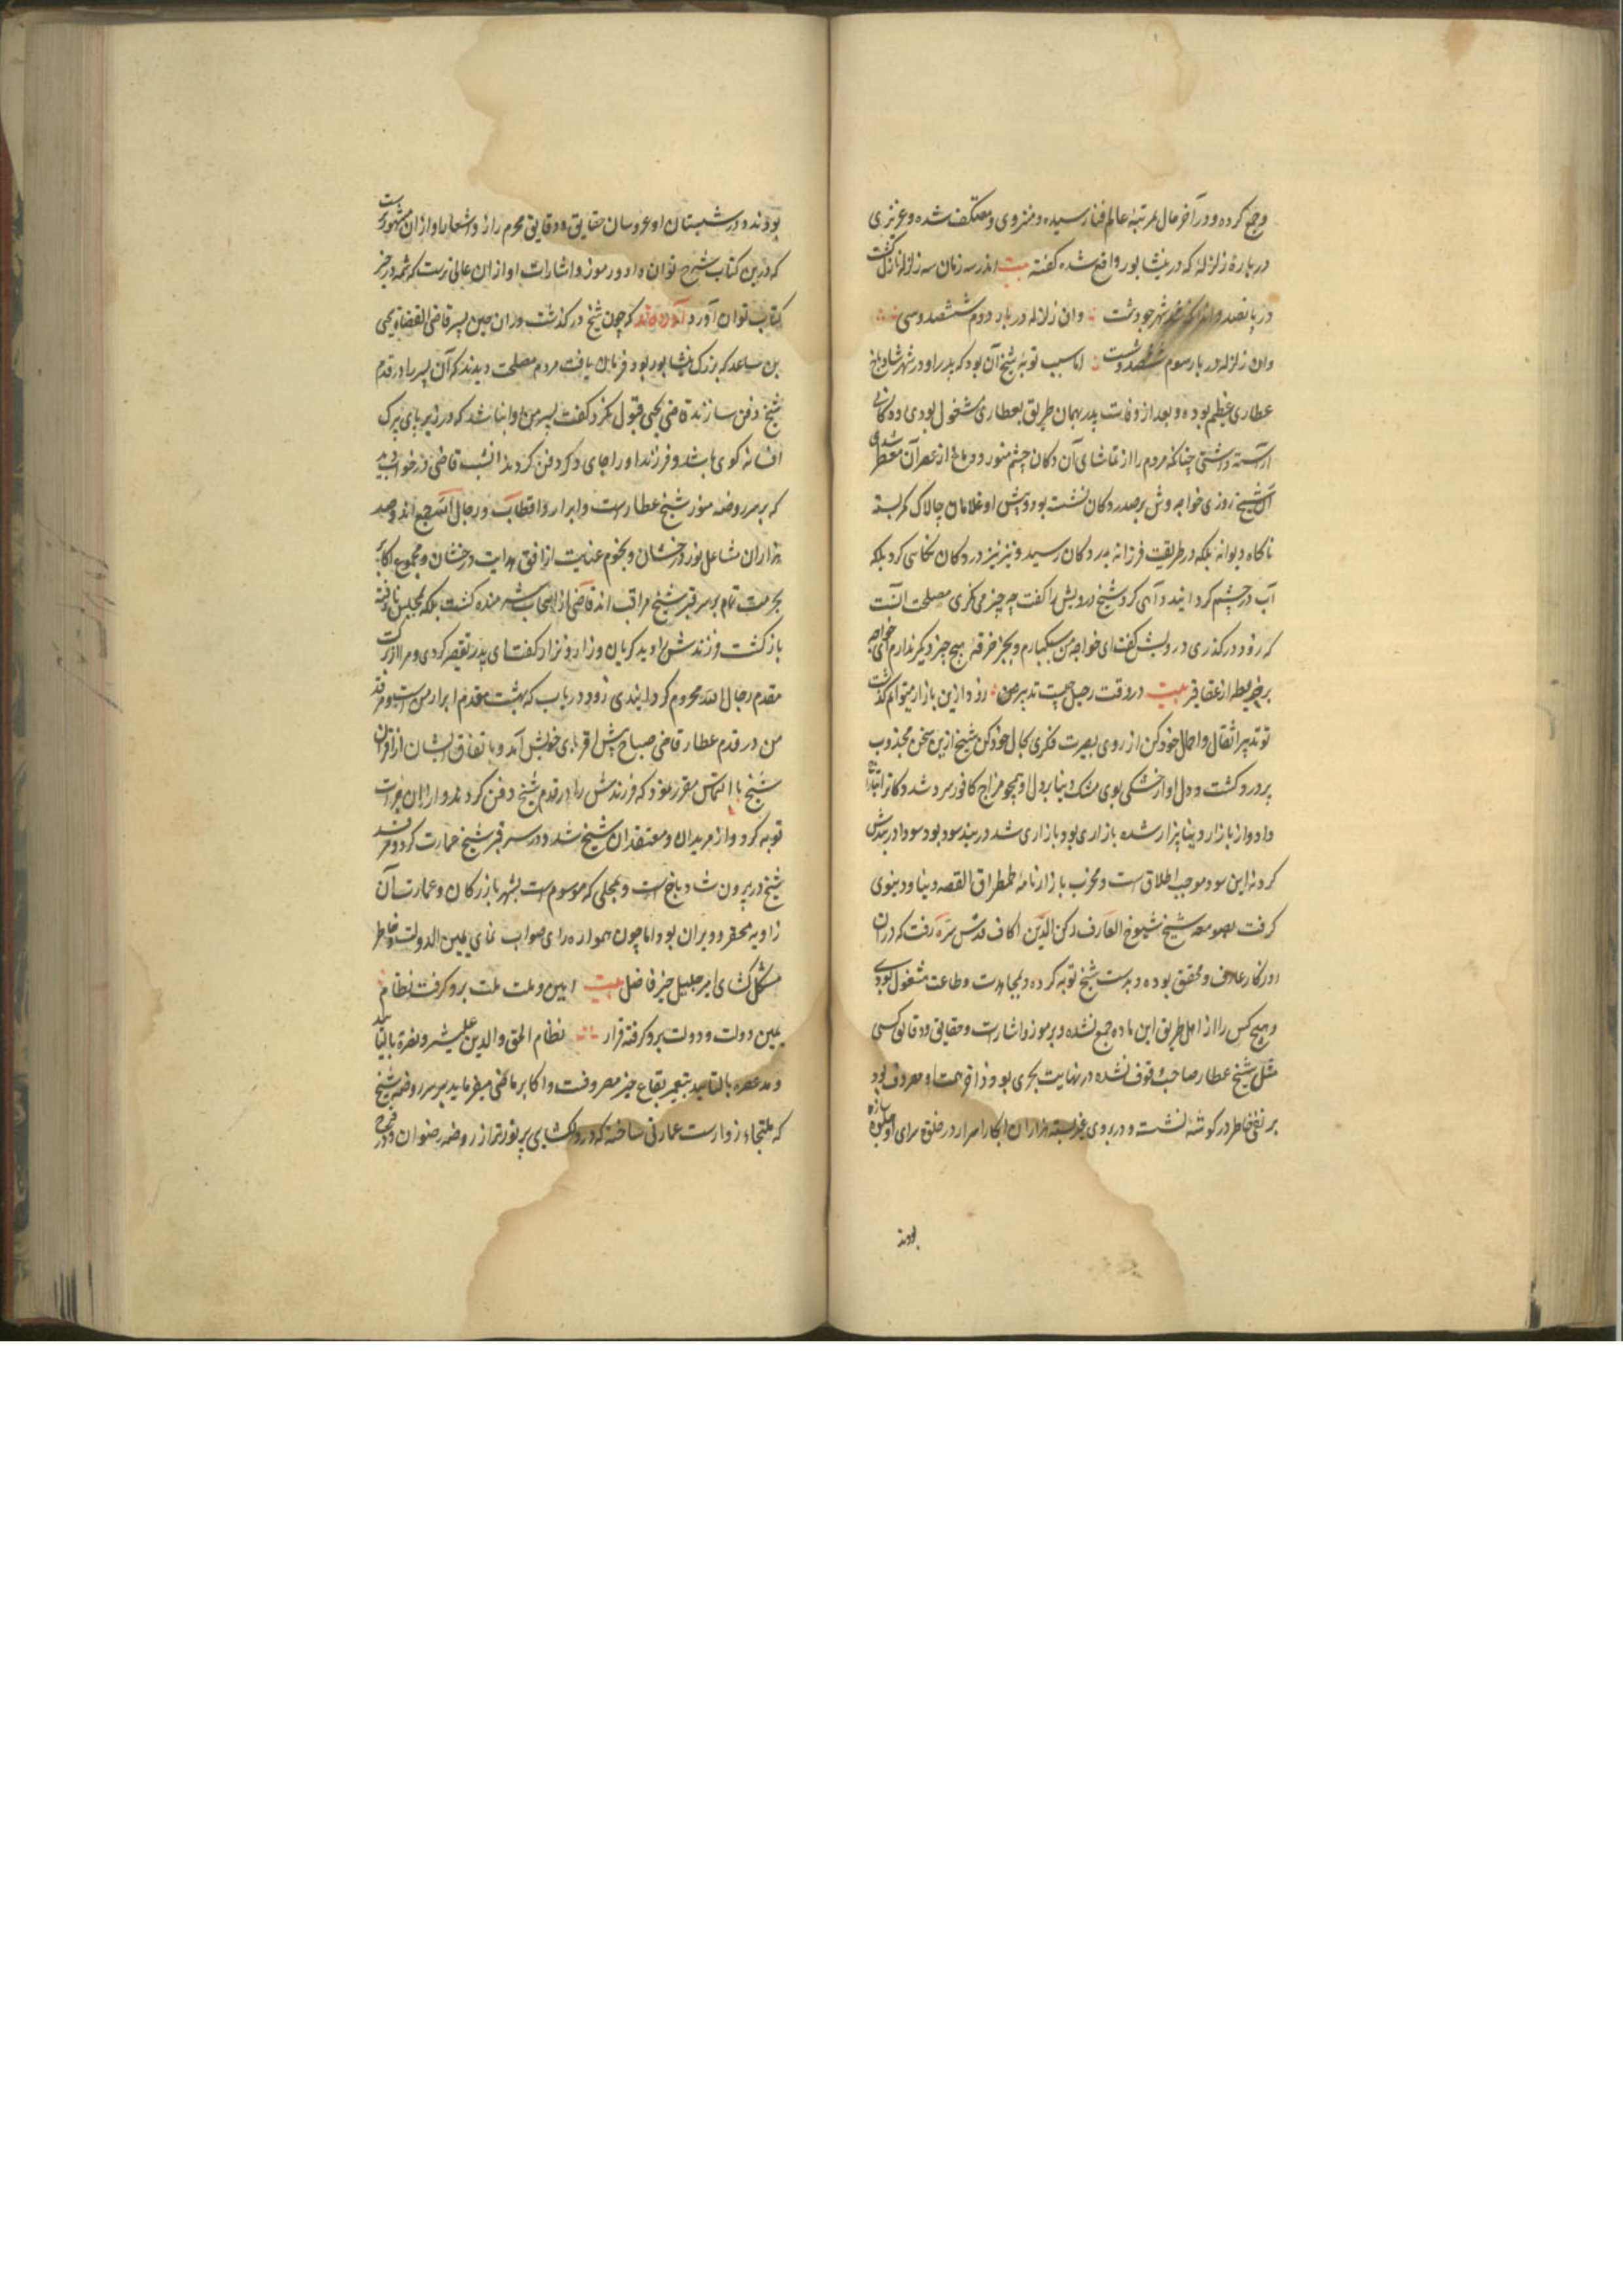 وجمع کرده و در آخر حال بمرتبهٔ عالم فنا رسیده و منزوی و معتکف شده و عزیزی
در بارهٔ زلزلهٔ که در نیشابور واقع شده گفته بیت اندر سه زمان سه زلزله نازل گشت
در پانصد و اند که شهر چو دشت وان زلزله در بار دوم ششصد و سی
وان زلزله در بار سوم ششصد و هشت اما سبب توبهٔ شیخ آن بود که پدر او در شهر شادیاخ
عطاری عظیم بوده و بعد از وفات پدر بهمان طریق بعطاری مشغول بودی و دکانی
آراسته داشتی چنانکه مردم را از تماشای آن دکان چشم منور و دماغ از عطر آن معطر شدی
شیخ روزی خواجه وش بر صدر دکان نشسته بود و پیش او غلامان چالاک کمر بسته
ناکاه دیوانهٔ بلکه در طریقت فرزانهٔ بدر دکان رسید و تیز تیز در دکان نکاهی کرد بلکه
آب در چشم کردانید و آهی کرد شیخ درویش را گفت چه چیز می نکری مصلحت آنست
که زود درگذری درویش گفت ای خواجه من سبکبارم و بجز خرقه هیچ چیز دیکر ندارم ای خواجه
بر خریطه از عقاقیر بیت در وقت رحیل چیست تدبیر من زود ازین بازار میتوانم گذشت
تو تدبیر اثقال و احمال خود کن از روی بصیرت فکری بحال خود کن شیخ ازین سخن مجذوب
پر درد گشت و دل او از خشکی بوی مشک دینا بر دل او همچو مزاج کافور سرد شد و دکانرا بتاراج
داد و از بازار دینا بیزار شده بازاری بود بازاری شد در بند سود بود سودا در بندش
کرد نه این سود موجب اطلاق است و مخرب بازار نامهٔ طمطراق القصه دینا و دینوی
گرفت بصومعهٔ شیخ شیوخ العارف رکن الدین اکاف قدس سره رفت که دران
روزکار عارف و محقق بوده و بدست شیخ توبه کرده و بمجاهدت و طاعت مشغول بودی
و هیچ کس را از اهل طریق این ماده جمع نشده و بر رموز و اشارت و حقایق و دقایق کسی
مثل شیخ عطار صاحب وقوف نشده در نهایت بحری بود و ذات همت او مصروف بود
بر نفی خاطر در کوشه نشسته و در بروی غیر بسته هزاران ابکار اسرار در خلوت سرای او جلوه ساز
بودند
بودند و در شبستان او عروسان حقایق و دقایق محرم راز و اشعار او از ان مشهور تر است
که درین کتاب شرح توان داد و رموز و اشارات او از ان عالی ترست که شمهٔ در حیز
کتاب توان آورد آورده‌اند که چون شیخ در گذشت دران حین پسر قاضی القضاة یحیی
بن ساعد که بزرک نیشابور بود فرمان یافت مردم مصلحت دیدند که آن پسر را در قدم
شیخ دفن سازند قاضی یحیی قبول نکرد گفت پسر من روا نباشد که در زیر پای پیرک
افسانه کوی باشد و فرزند او را جای دکر دفن کردند آن شب قاضی در خواب دید
که بر سر روضهٔ منور شیخ عطارست و ابرار و اقطاب و رجال الله جمع اند و صد
هزاران مشاعل نور درخشان و نجوم عنایت از افق هدایت درخشان و مجموع اکابر
بحرمت تمام بر سر قبر شیخ مراقب اند قاضی از اصحاب شرمنده گشت بلکه مجلس نایافته
باز گشت فرزندش را دید گریان و زار و نزار گفت ای پدر تقصیر کردی و مرا از برکت
مقدم رجال الله محروم کردانیدی زود دریاب که بهشت مقدم ابرار من است و مرقد
من در قدم عطار قاضی صباح پیش اقربای خویش آمد و باتفاق ایشان از اقران
شیخ با التماس مقرر نمود که فرزندش را در قدم شیخ دفن کردند و از ان جرات
توبه کرد و از مریدان و معتقدان شیخ شد و در سر قبر شیخ عمارت کرد و مرقد
شیخ در بیرون شادیاخ است و بمحلی که موسوم ست بشهر بازرکان و عمارت آن
زاویه محقر و ویران بود اما چون همواره رای صواب نمای یمین الدولت و خاطر
مشکل گشای امیر جلیل خیر فاضل بیت امین و ملت ملت برو گرفت نظام
یمین دولت و دولت برو گرفته قرار نظام الحق والدین علیشیر و نصرة بالتایید
و مد عمره بالتابید بتعمیر بقاع خیر مصروفست و اکابر ماضی میفرماید بر سر روضهٔ شیخ
که ملتجاء زوارست عمارتی ساخته که در دلکشای پر نورتر از روضهٔ رضوان و در